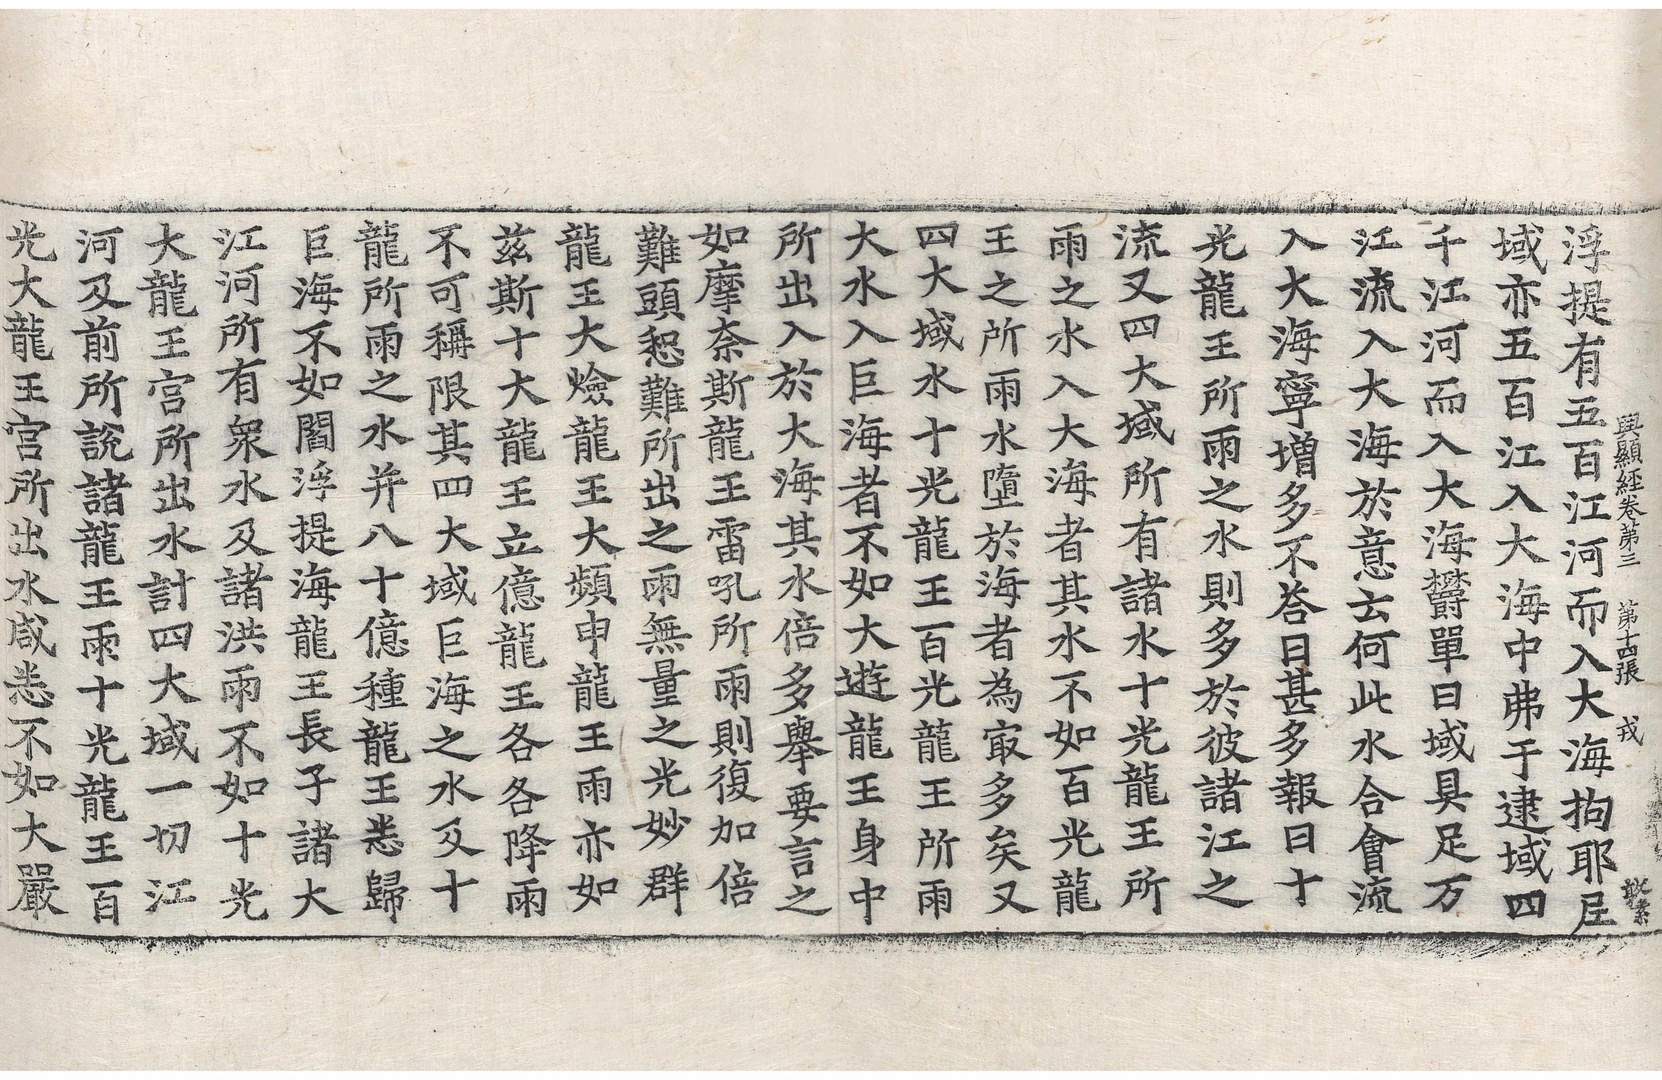 興顯經卷第三 第十四張 戎
浮提有五百江河而入大海拘耶尼
域亦五百江入大海中弗于逮域四
千江河而入大海欝單曰域具足万
江流入大海於意云何此水合會流
入大海寧增多不荅曰甚多報曰十
光龍王所雨之水則多於彼諸江之
流又四大域所有諸水十光龍王所
雨之水入大海者其水不如百光龍
王之所雨水墮於海者為㝡多矣又
四大域水十光龍王百光龍王所雨
大水入巨海者不如大遊龍王身中
所出入於大海其水倍多舉要言之
如摩奈斯龍王雷吼所雨則復加倍
難頭惒難所出之雨無量之光妙群
龍王大㷿龍王大頻申龍王雨亦如
茲斯十大龍王立億龍王各各降雨
不可稱限其四大域巨海之水及十
龍所雨之水并八十億種龍王悉歸
巨海不如閻浮提海龍王長子諸大
江河所有衆水及諸洪雨不如十光
大龍王宮所出水計四大域一切江
河及前所說諸龍王雨十光龍王百
光大龍王宮所出水咸悉不如大嚴